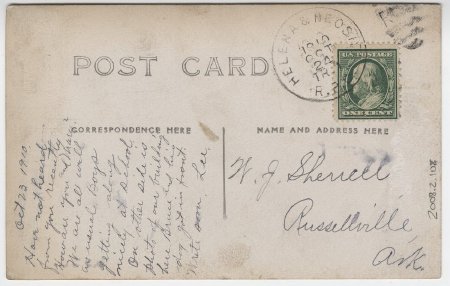 HELENA & NEOSHO
1910
OCT
24
TR
R.P.
U.S. POSTAGE
ONE CENT
POST CARD
CORRESPONDENCE HERE
NAME AND ADDRESS HERE
Oct 23 1910.
Have not heard
from you recently
How are you and
We are all well
as usual. Boys
getting along
nicely at School
On other side is
photo of our building
here
dog just in front.
Write soon Lee.
W. J. Sherrell
Russellville
Ark.
2011.2.8002